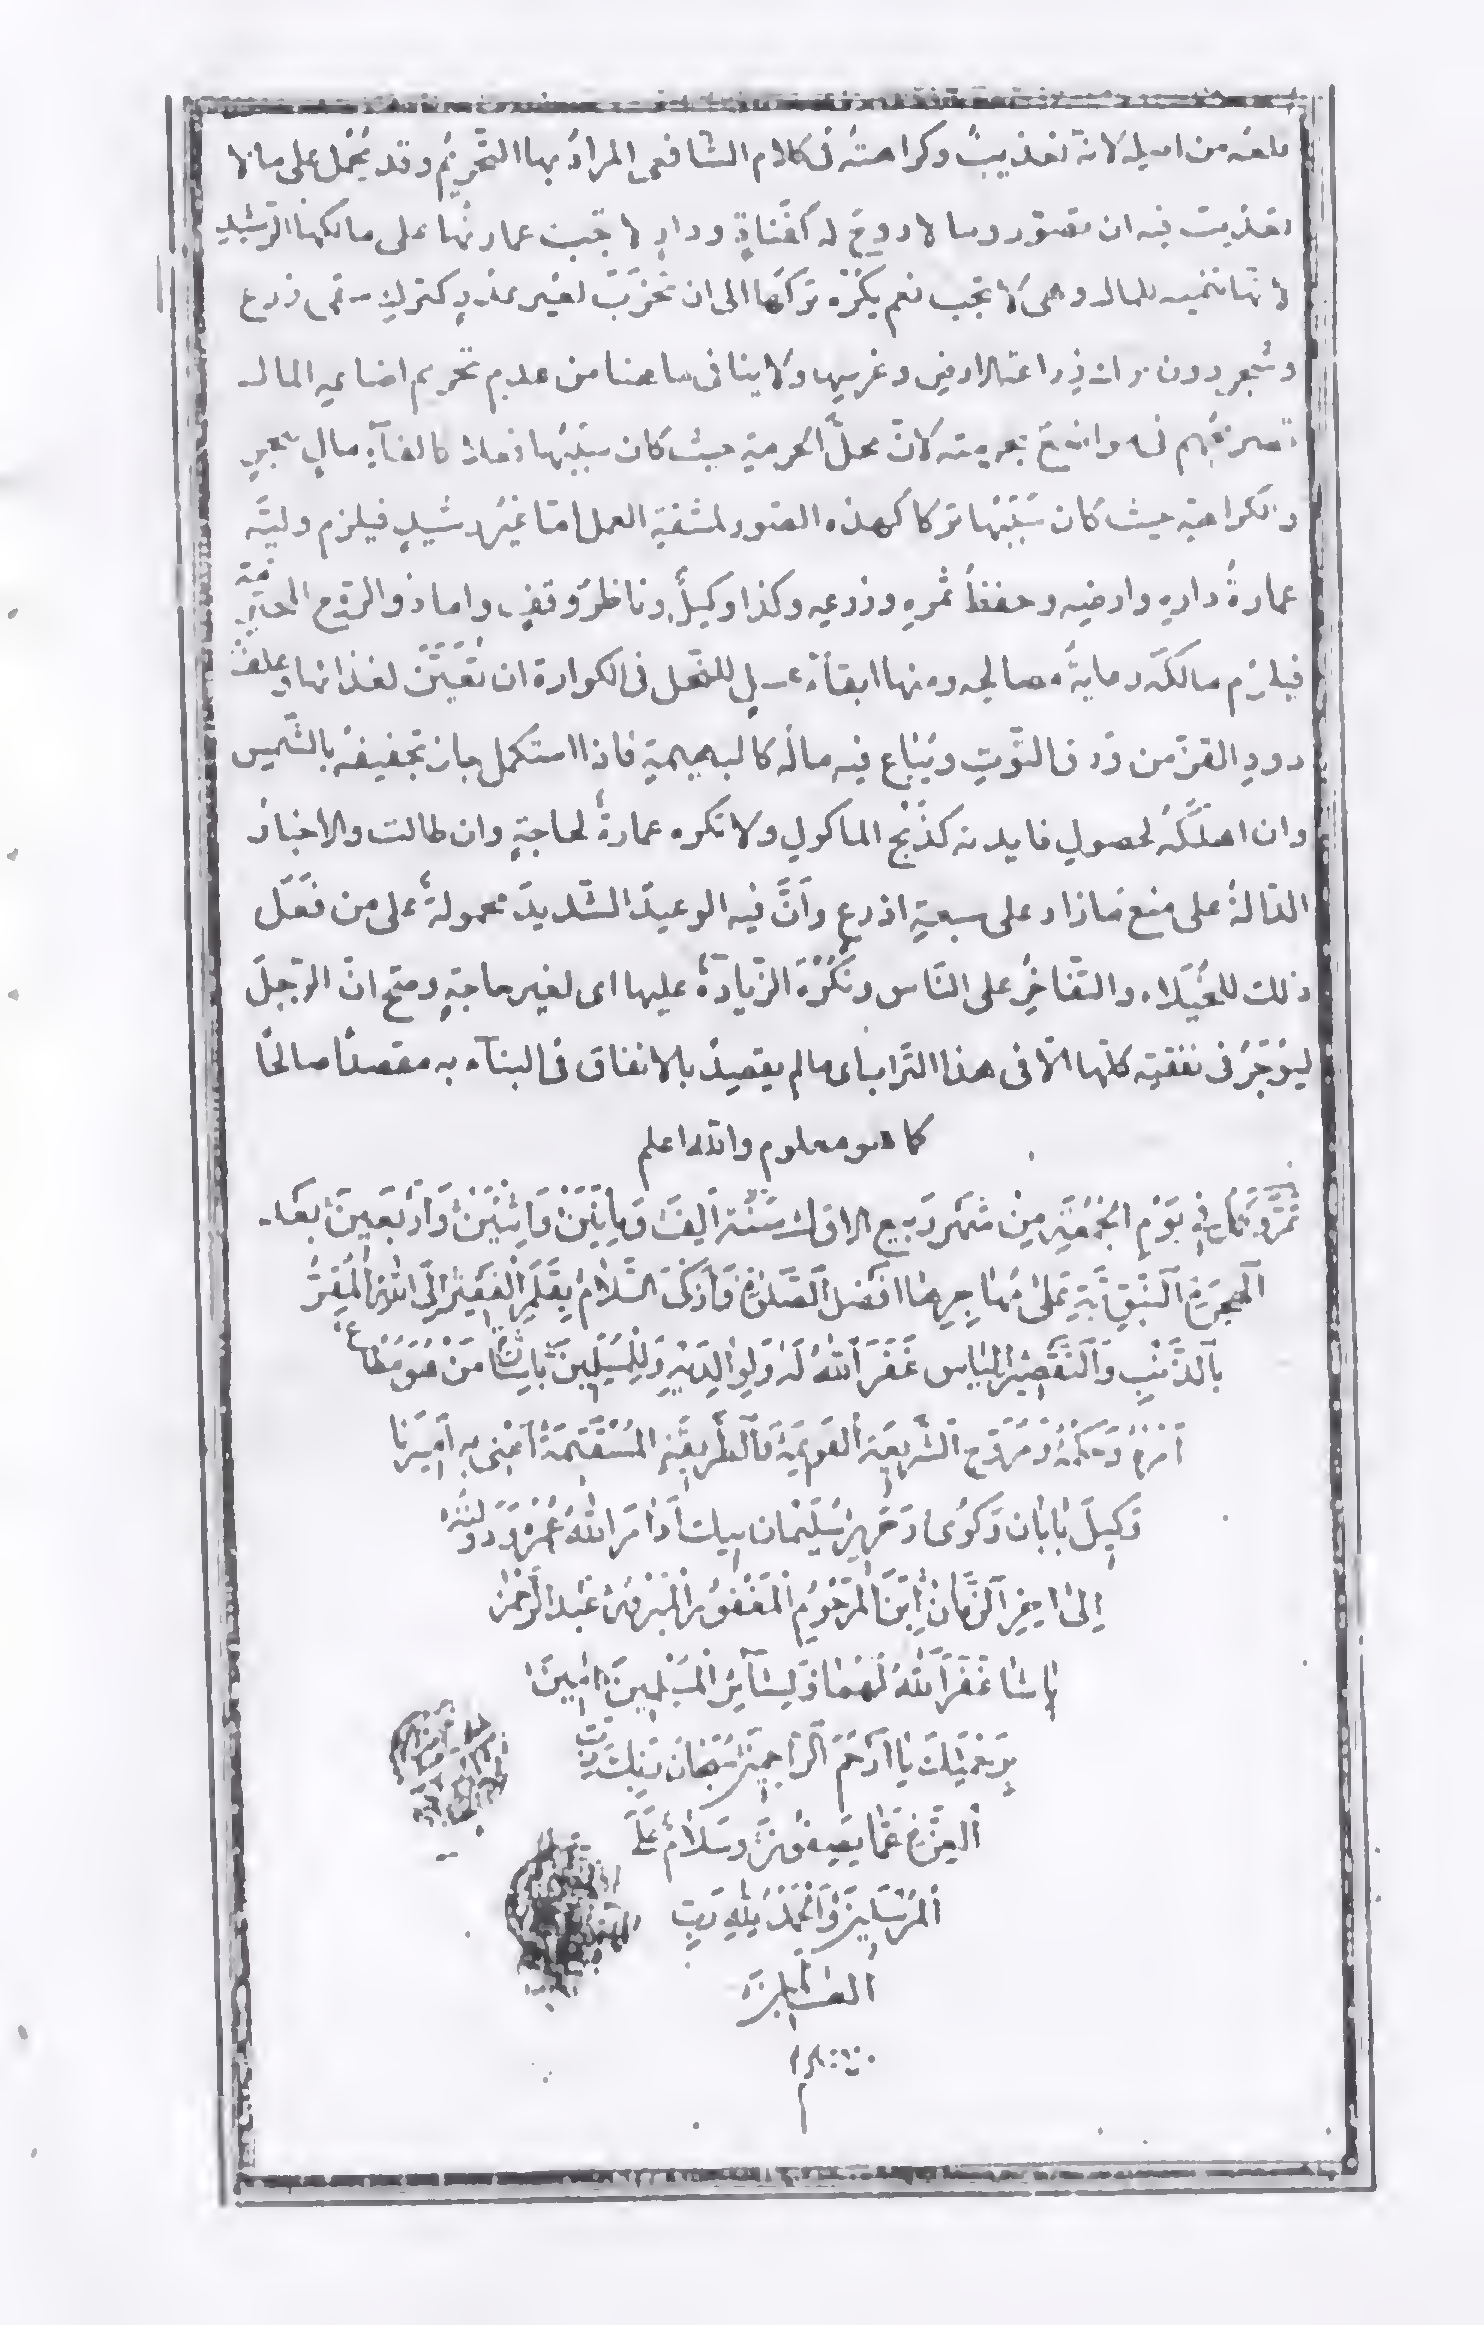 من اصله لانه تعذيب وكراهته فى كلام الشافعى المراد بها التحريم وقد يحمل على ما لا
تعذيب فيه ان تصور وما لا روح له كقناةٍ ودارٍ لا تجب عمارتها على مالكها الرشيد
لانها تنميه للمال وهى لا تجب نعم يكره تركها الى ان تخرب لغير عذرٍ كترك سقى زرع
وشجر دون ولا ينافى ما هنا من عدم تحريم اضاعه المال
بحرمته لانّ محلَّ الحرمةِ حيث كان سببُها فعلا كالقآءِ مالٍ ببحرٍ
والكراهةِ حيث كان سَبَبُها تركا كهذه الصور لمشقةِ العمل امّا غيرُ رشيدٍ فيلزم وليَّه
عمارةُ داره وارضه وحفظُ ثمره وزرعه وكذا وكيلٌ وناظرُ وقفٍ واما ذو الروح المحترمة
فيلزم مالكَه رعايةُ مصالحه ومنها ابقآءُ عسلٍ للنّحل فى الكوارة ان تعيّن لغذائها وعلف
دودِ القزّ من ورق التّوتِ ويُباع فيه مالُه كالبهيمةِ فاذا استكمل جاز تجفيفه بالشمس
وان اهلكَه لحصولِ فايدته كذَبْحِ الماكولِ ولا تكره عمارةٌ لحاجةٍ وان طالت والاخبار
الدّالةُ على منع ما زاد على سبعةِ اذرعٍ وأنَّ فيه الوعيدَ الشّديدَ محمولةٌ على من فَعَلَ
ذلك للخُيَلاء والتّفاخرِ على النّاس وتُكْرَهُ الزّيادةُ عليها اى لغير حاجةٍ وصح انّ الرّجلَ
ليُؤجَرُ فى نفقتِه كلّها الاّ فى هذا التّراب اى ما لم يقصِدْ بالانفاق فى البنآء به مقصدًا صالحًا
كما هو معلوم والله اعلم
فِى يَوْمِ الجُمُعَةِ مِنْ شَهْرِ رَبيع الاول سَنَة اَلْف وَمِائَتَيْنِ وَاثْنَيْن وَاَرْبَعين بَعْدَ
الْهِجْرَةِ النَّبَوِيَّةِ عَلىٰ مُهَاجِرِهَا افضل الصَّلوٰةِ وَازْكَى السَّلَامُ بِقَلَمِ الْفَقير اِلَى اللهِ الْمُقِرُّ
بِالذَّنْبِ وَالتَّقْصِيرِ اِلْيَاس غَفَرَ اللهُ لَهُ وَلِوٰالِدَيْهِ وَلِلْمُسْلِمينَ مَنْ هُوَ مُطَاع
اَمْرُهُ وَحُكْمُهُ وَمُرَوِّج الشَّريعَة القَويمَة وَالطَّريقَةِ المُسْتَقيمَة اَعْنى بِه اَميرَنا
وَكيلَ بَابَان وَكوى وَحَرير سُلَيْمَان بيك اَدَامَ اللهُ عُمْرَهُ وَدَوْلَتَهُ
اِلىٰ اٰخِرِ الزَّمَان اِبْنَ الْمَرْحُومِ الْمَغْفُور الْمَبْرُور عَبْد الرَّحْمٰن
پَاشَا غَفَرَ اللهُ لَهُمَا وَلِسَآئِرِ الْمُسْلِمينَ اٰمينَ
بِرَحْمَتِكَ يَا اَرْحَمَ الرَّاحِمينَ سُبْحَانَ رَبِّكَ رَبِّ
الْعِزَّةِ عَمَّا يَصِفُونَ وَسَلَامٌ عَلَى
الْمُرْسَلينَ وَالْحَمْدُ لِلّٰهِ رَبِّ
الْعَالَمينَ
م